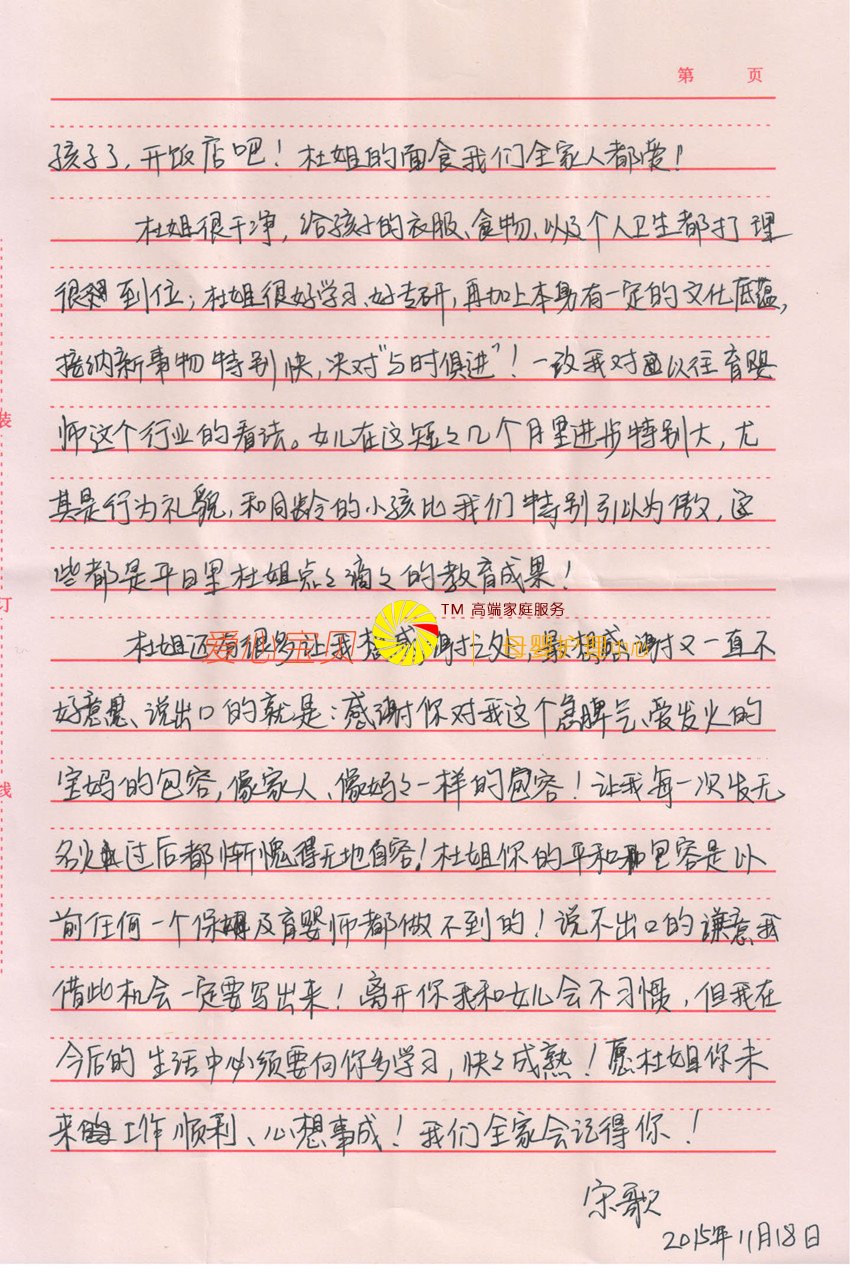 第 页
孩子了,开饭店吧!杜姐的面食我们全家人都爱!
杜姐很干净,给孩子的衣服、食物、以及个人卫生都打理
很到位;杜姐很好学习、好专研,再加上本身有一定的文化底蕴,
接纳新事物特别快,决对"与时俱进"!一改我对以往育婴
师这个行业的看法。女儿在这短々几个月里进步特别大,尤
其是行为礼貌,和同龄的小孩比我们特别引以为傲,这
些都是平日里杜姐点々滴々的教育成果!
TM 高端家庭服务
爱心宝贝 母婴护理
杜姐还有很多让我想感谢之处,最想感谢又一直不
好意思、说出口的就是:感谢你对我这个急脾气、爱发火的
宝妈的包容,像家人、像妈々一样的包容!让我每一次发无
名火过后都惭愧得无地自容!杜姐你的平和和包容是以
前任何一个保姆及育婴师都做不到的!说不出口的谦意我
借此机会一定要写出来!离开你我和女儿会不习惯,但我在
今后的生活中必须要向你多学习,快々成熟!愿杜姐你未
来的工作顺利、心想事成!我们全家会记得你!
宋歌
2015年11月18日
装
订
线